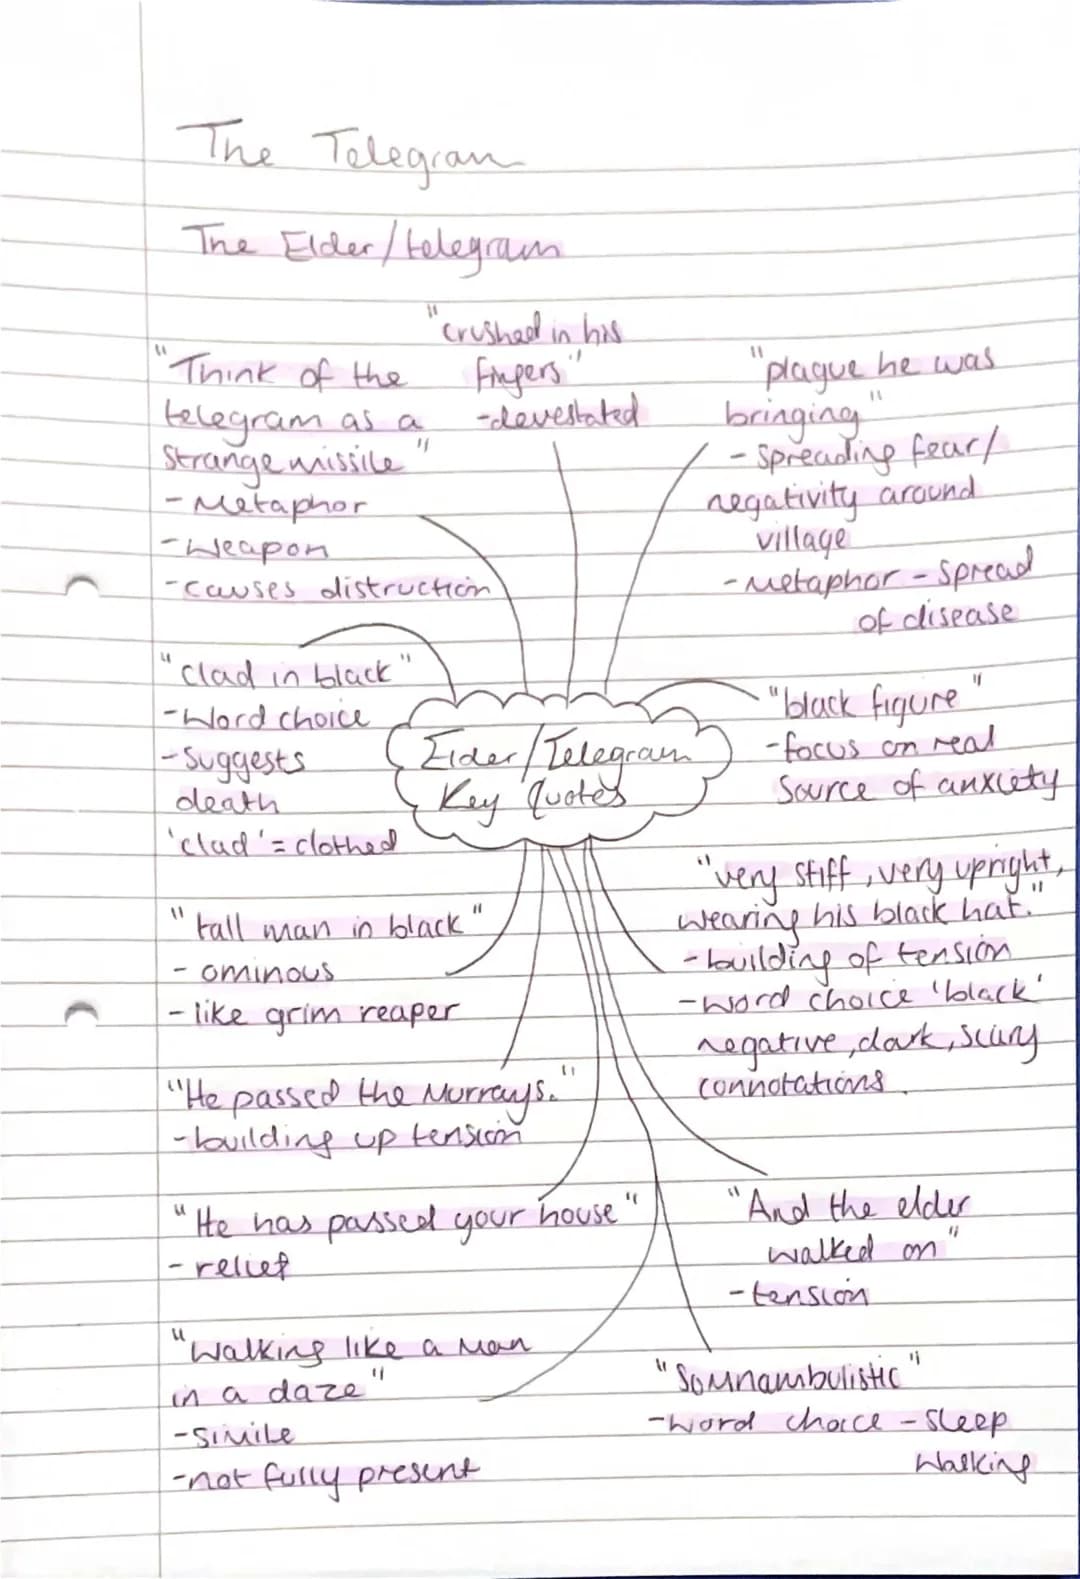 The Telegram
The Elder/telegram
"Think of the
telegram as a
strange missile"
-Metaphor
-Weapon
-causes distruction
"crushed in his
fingers"
-devestated
"plague he was
bringing"
-spreading fear/
negativity around
village
-metaphor - spread
of disease
"clad in black"
-Word choice
-Suggests
death
'clad' = clothed
Elder/Telegram
Key Quotes
"black figure"
-focus on real
source of anxiety
"tall man in black"
- ominous
- like grim reaper
"very stiff, very upright,
wearing his black hat."
-building of tension
-word choice 'black'
negative, dark, scary
connotations.
"He passed the Murrays."
-building up tension
"He has passed your house"
- relief
"And the elder
walked on"
-tension
"Walking like a man
in a daze"
-simile
-not fully present
"Somnambulistic"
-word choice - sleep
walking